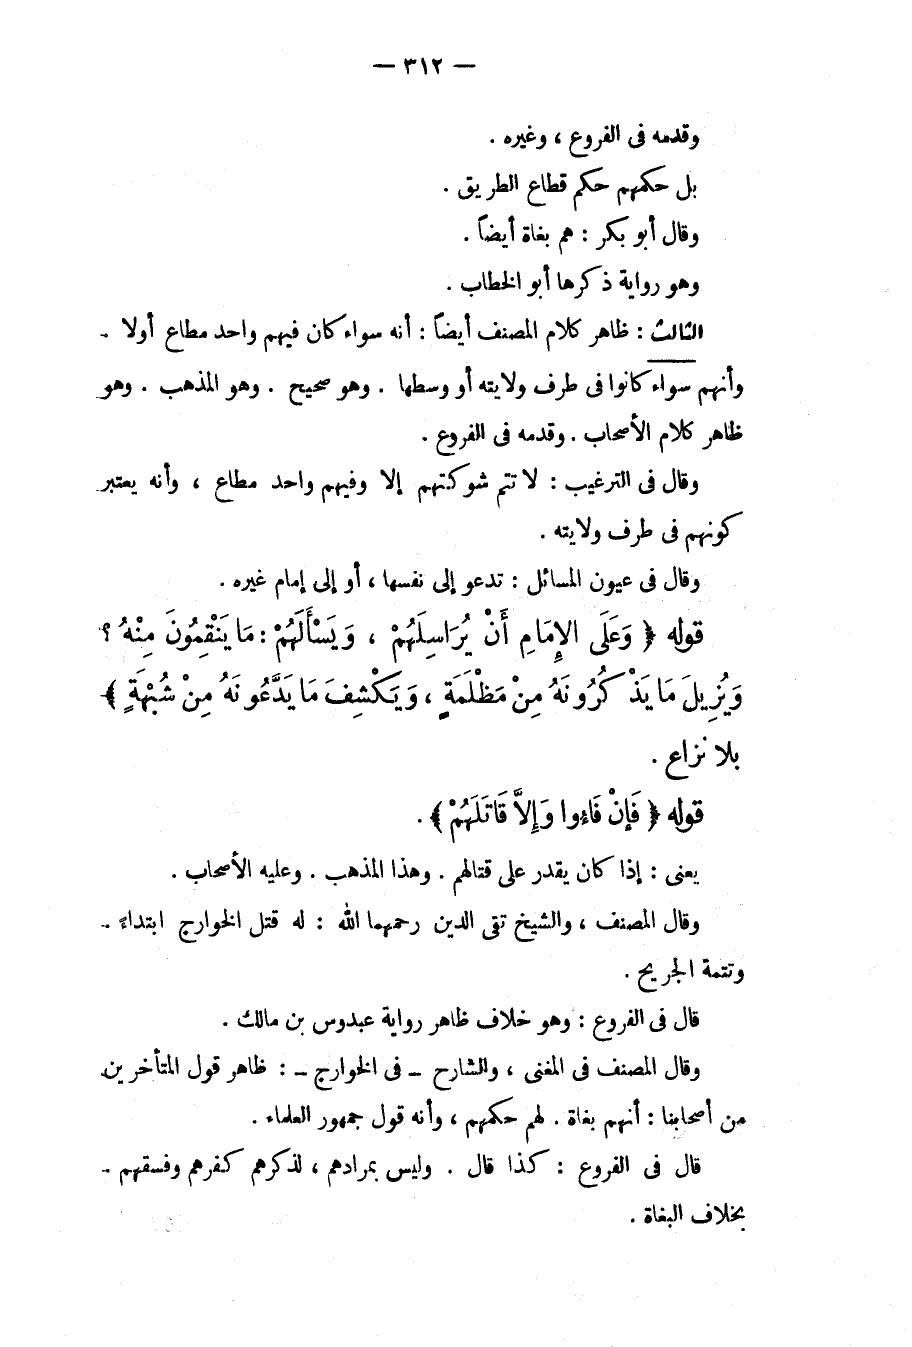 — ٣١٢ —
وقدمه فى الفروع ، وغيره .
بل حكمهم حكم قطاع الطريق .
وقال أبو بكر : هم بغاة أيضاً .
وهو رواية ذكرها أبو الخطاب .
الثالث : ظاهر كلام المصنف أيضاً : أنه سواء كان فيهم واحد مطاع أولا .
وأنهم سواء كانوا فى طرف ولايته أو وسطها . وهو صحيح . وهو المذهب . وهو
ظاهر كلام الأصحاب . وقدمه فى الفروع .
وقال فى الترغيب : لا تتم شوكتهم إلا وفيهم واحد مطاع ، وأنه يعتبر
كونهم فى طرف ولايته .
وقال فى عيون المسائل : تدعو إلى نفسها ، أو إلى إمام غيره .
قوله ﴿ وَعَلَى الإِمَامِ أَنْ يُرَاسِلَهُمْ ، وَيَسْأَلَهُمْ : مَا يَنْقِمُونَ مِنْهُ ؟
وَيُزِيلَ مَا يَذْكُرُونَهُ مِنْ مَظْلَمَةٍ ، وَيَكْشِفَ مَا يَدَّعُونَهُ مِنْ شُبْهَةٍ ﴾
بلا نزاع .
قوله ﴿ فَإِنْ فَاءُوا وَإِلاَّ قَاتَلَهُمْ ﴾ .
يعنى : إذا كان يقدر على قتالهم . وهذا المذهب . وعليه الأصحاب .
وقال المصنف ، والشيخ تقى الدين رحمهما الله : له قتل الخوارج ابتداءً .
وتتمة الجريح .
قال فى الفروع : وهو خلاف ظاهر رواية عبدوس بن مالك .
وقال المصنف فى المغنى ، والشارح – فى الخوارج – : ظاهر قول المتأخرين
من أصحابنا : أنهم بغاة . لهم حكمهم ، وأنه قول جمهور العلماء .
قال فى الفروع : كذا قال . وليس بمرادهم ، لذكرهم كفرهم وفسقهم .
بخلاف البغاة .